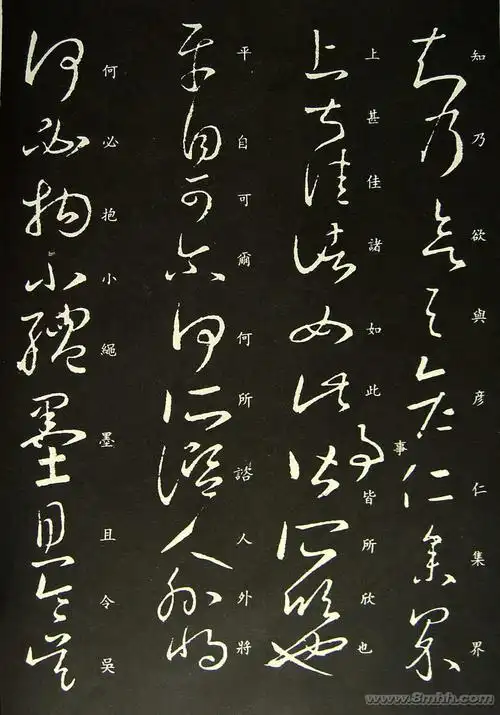 知乃欲與彦仁集界
上甚佳諸如此事皆所欣也
平自可爾何所諮人外將
何必抱小繩墨且令吳
www.8mhh.com